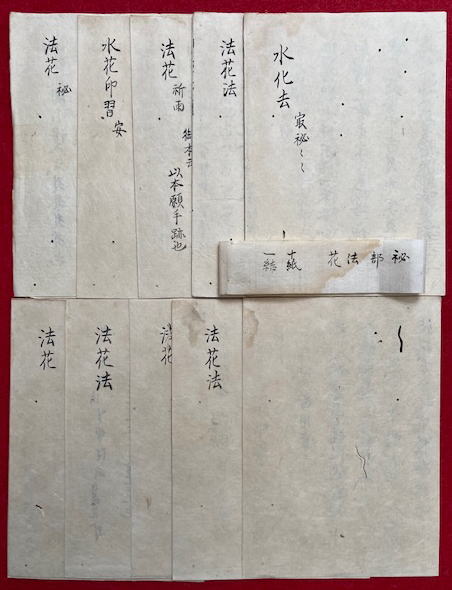 水化去
㝡秘〻〻
法花法
法花
祈雨
御本云
以本願手跡也
水花印習
安
法花
秘
秘部法花
十紙
一結
法花法
法花
法花法
法花